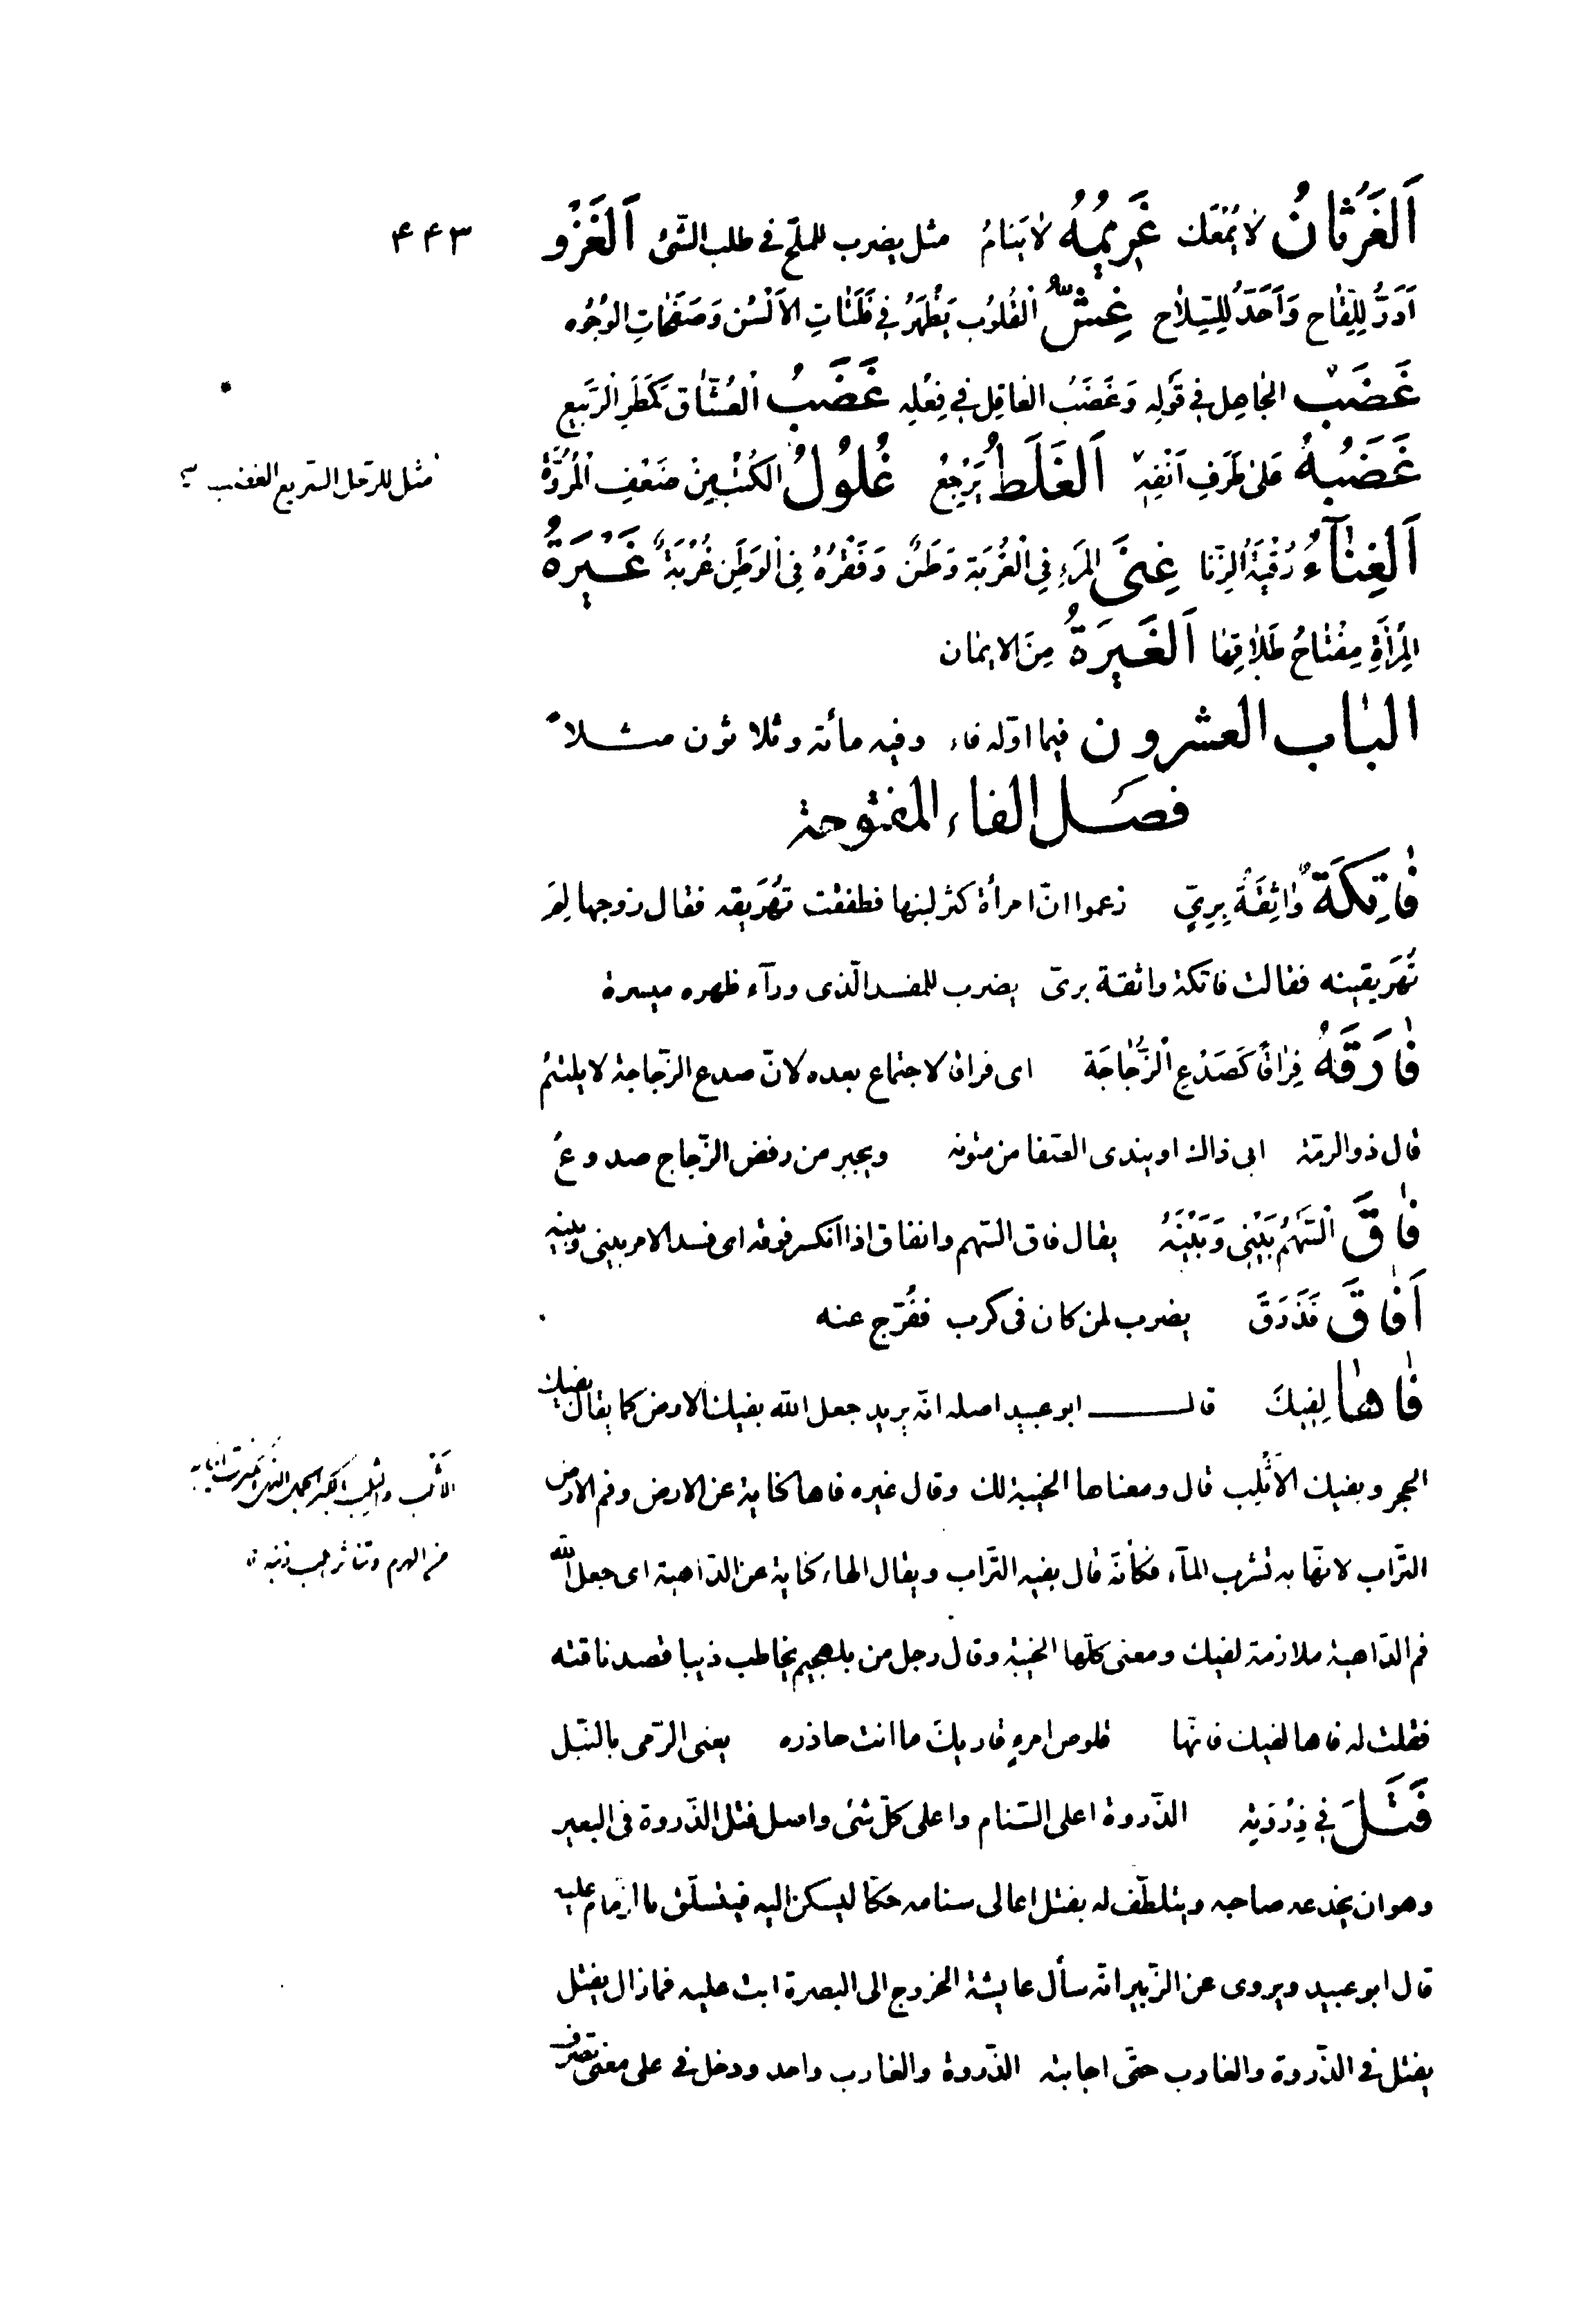 ۴۴۳
اَلغَرْثانُ لا يُمْعَك غَرِيمُهُ لا يَنامُ مثل يضرب للملحّ فى طلب الشّئ اَلغَزْو
اَدَرُّ لِلِّقاح وَاَحَدُّ لِلسِّلاح غِشُّ القُلوُب يَظْهَرُ فى فَلَتاتِ الاَلْسُن وَصَفَحاتِ الوُجُوه
غَضَب الجاهِل فى قَولِه وَغَضَبُ العاقِل فى فِعْلِه غَضَبُ العُشّاق كَمَطَرِ الرَّبيع
غَضَبُهُ عَلى طَرَفِ اَنْفِه اَلغَلَطُ يَرْجِعُ غُلوُلُ الكُتُبِ مِنْ ضَعْفِ المُرُوَّة
مثل للرّجل السّريع الغضب
اَلغِناءُ رُقْيَةُ الزِّنا غِنىَ المَرءِ فِى الْغُرْبَة وَطَنٌ وَفَقْرُهُ فِى الْوَطَن غُرْبَةٌ غَيْرَةُ
المَرأَةِ مِفْتاحُ طَلاقِها اَلغَيرَةُ مِنَ الايمان
الباب العشرون فيما اوّله فاء وفيه مأئة وثلاثون مثلاً
فصل الفاء المفتوحة
فاتِكَةٌ واثِقَةٌ بِرِىٍّ زعموا انّ امرأة كثر لبنها فطفقت تُهَريقه فقال زوجها لِمَ
تُهَريقينه فقالت فاتكة واثقة برىّ يضرب للمفسد الّذى ورآء ظهره ميسرة
فارَقَهُ فِراقاً كَصَدْعِ الزُّجاجَة اى فراق لا اجتماع بعده لانّ صدع الزّجاجة لا يلتئم
قال ذو الرمّة ابى ذاك او يندى الصّفا من متونه ويجبر من رفض الزّجاج صدوعُ
فاقَ السَّهمُ بَيْنى وَبَيْنَهُ يقال فاق السّهم وانفاق اذا انكسر فوقه اى فسد الامر بينى وبينه
اَفاقَ فَذَرَقَ يضرب لمن كان فى كرب ففُرّج عنه
فاها لِفِيكَ قال ابو عبيد اصله انّه يريد جعل الله بفيك الارض كما يقال بفيك
الحجر وبفيك الاَثْلِب قال ومعناها الخيبة لك وقال غيره فاها كناية عن الارض وفم الارض
التّراب لانّها به تشرب المآء فكأنّه قال بفيه التّراب ويقال الهاء كناية عن الدّاهية اى جعل الله
من الهرم وتناثر هلب ذنبه
فم الدّاهية ملازمة لفيك ومعنى كلّها الخيبة وقال رجل من بلهجيم يخاطب ذيبا قصد ناقته
فقلت له فاها لفيك فانّها قلوص امرءٍ قاريك ما انت حاذره يعنى الرّمى بالنّبل
فَتَلَ فى ذِرْوَتِه الذّروة اعلى السّنام واعلى كلّ شئ واصل فتل الذّروة فى البعير
وهو ان يخدعه صاحبه ويتلطّف له بفتل اعالى سنامه حكّا ليسكن اليه فيتسلّق بالزمام عليه
قال ابو عبيد ويروى عن الزّبير انّه سأل عايشة الخروج الى البصرة ابت عليه فمازال يفتل
يفتل فى الذّروة والغارب حتّى اجابته الذّروة والغارب واحد ودخل فى على معنى تصرف